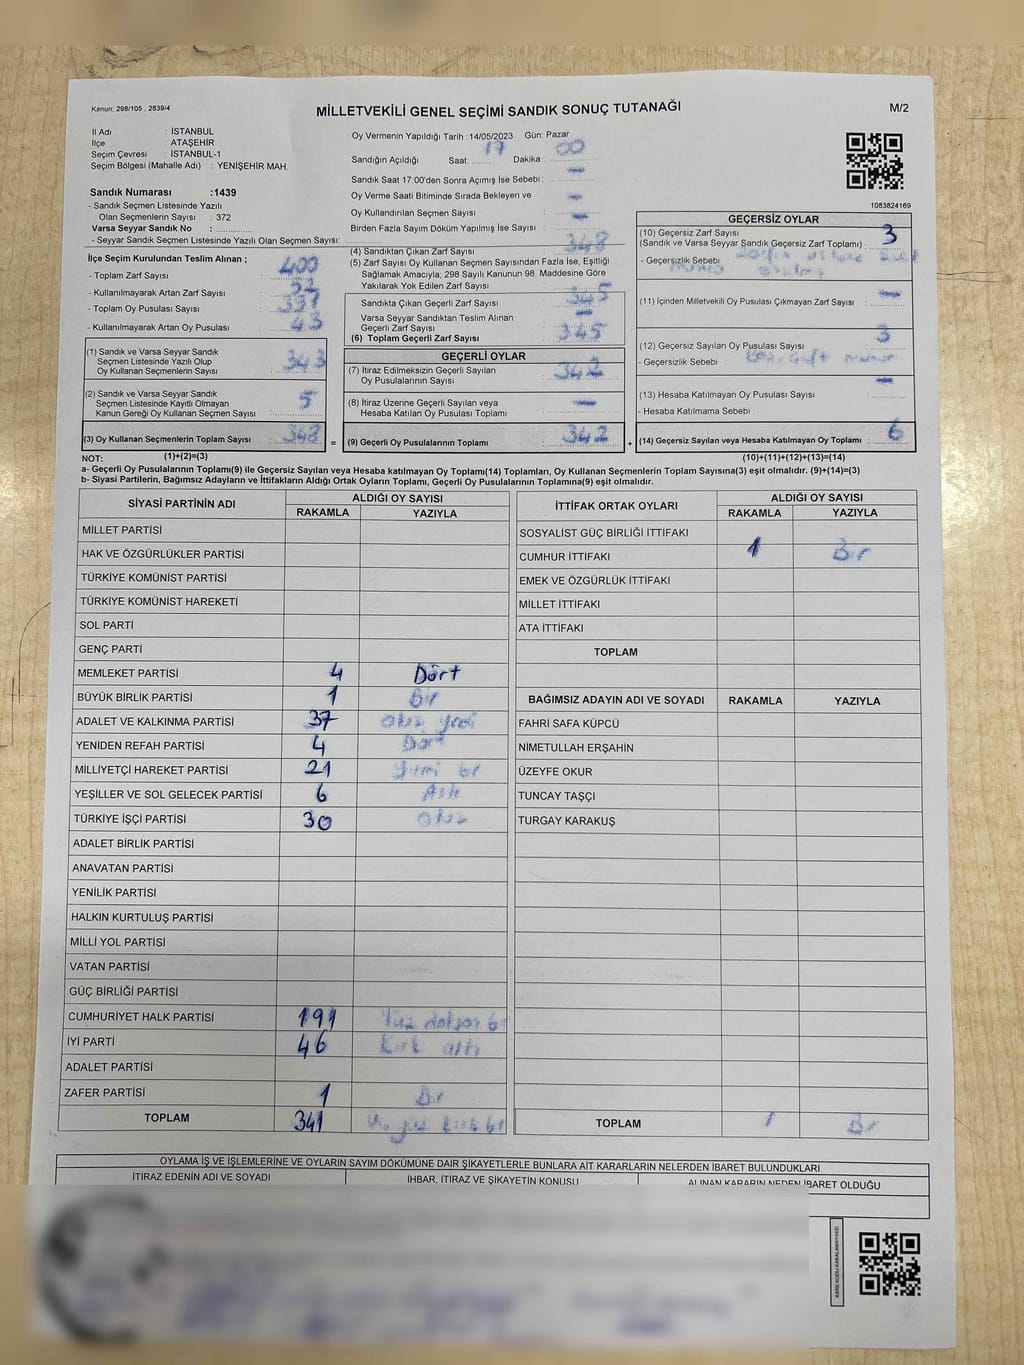 Kanun: 298/105 , 2839/4
MİLLETVEKİLİ GENEL SEÇİMİ SANDIK SONUÇ TUTANAĞI
M/2
İl Adı : İSTANBUL
İlçe : ATAŞEHİR
Seçim Çevresi : İSTANBUL-1
Seçim Bölgesi (Mahalle Adı) : YENİŞEHİR MAH.
Sandık Numarası :1439
- Sandık Seçmen Listesinde Yazılı
Olan Seçmenlerin Sayısı : 372
Varsa Seyyar Sandık No :
- Seyyar Sandık Seçmen Listesinde Yazılı Olan Seçmen Sayısı:
Oy Vermenin Yapıldığı Tarih :14/05/2023 Gün: Pazar
Sandığın Açıldığı Saat: 17 Dakika : 00
Sandık Saat 17:00'den Sonra Açımış İse Sebebi : -
Oy Verme Saati Bitiminde Sırada Bekleyen ve
Oy Kullandırılan Seçmen Sayısı -
Birden Fazla Sayım Döküm Yapılmış İse Sayısı : -
1083824169
İlçe Seçim Kurulundan Teslim Alınan ;
- Toplam Zarf Sayısı : 400
- Kullanılmayarak Artan Zarf Sayısı : 52
- Toplam Oy Pusulası Sayısı : 391
- Kullanılmayarak Artan Oy Pusulası : 43
(1) Sandık ve Varsa Seyyar Sandık
Seçmen Listesinde Yazılı Olup
Oy Kullanan Seçmenlerin Sayısı : 343
(2) Sandık ve Varsa Seyyar Sandık
Seçmen Listesinde Kayıtlı Olmayan
Kanun Gereği Oy Kullanan Seçmen Sayısı : 5
(3) Oy Kullanan Seçmenlerin Toplam Sayısı : 348
(4) Sandıktan Çıkan Zarf Sayısı : 348
(5) Zarf Sayısı Oy Kullanan Seçmen Sayısından Fazla İse, Eşitliği
Sağlamak Amacıyla; 298 Sayılı Kanunun 98. Maddesine Göre
Yakılarak Yok Edilen Zarf Sayısı :
Sandıkta Çıkan Geçerli Zarf Sayısı : 345
Varsa Seyyar Sandıktan Teslim Alınan
Geçerli Zarf Sayısı : -
(6) Toplam Geçerli Zarf Sayısı : 345
GEÇERLİ OYLAR
(7) İtiraz Edilmeksizin Geçerli Sayılan
Oy Pusulalarının Sayısı : 342
(8) İtiraz Üzerine Geçerli Sayılan veya
Hesaba Katılan Oy Pusulası Toplamı : -
= (9) Geçerli Oy Pusulalarının Toplamı : 342
GEÇERSİZ OYLAR
(10) Geçersiz Zarf Sayısı
(Sandık ve Varsa Seyyar Sandık Geçersiz Zarf Toplamı) : 3
- Geçersizlik Sebebi :
(11) İçinden Milletvekili Oy Pusulası Çıkmayan Zarf Sayısı : -
(12) Geçersiz Sayılan Oy Pusulası Sayısı : 3
- Geçersizlik Sebebi : mühür
(13) Hesaba Katılmayan Oy Pusulası Sayısı : -
- Hesaba Katılmama Sebebi :
+ (14) Geçersiz Sayılan veya Hesaba Katılmayan Oy Toplamı : 6
NOT: (1)+(2)=(3)
(10)+(11)+(12)+(13)=(14)
a- Geçerli Oy Pusulalarının Toplamı(9) ile Geçersiz Sayılan veya Hesaba katılmayan Oy Toplamı(14) Toplamları, Oy Kullanan Seçmenlerin Toplam Sayısına(3) eşit olmalıdır. (9)+(14)=(3)
b- Siyasi Partilerin, Bağımsız Adayların ve İttifakların Aldığı Ortak Oyların Toplamı, Geçerli Oy Pusulalarının Toplamına(9) eşit olmalıdır.
SİYASİ PARTİNİN ADI ALDIĞI OY SAYISI
RAKAMLA YAZIYLA
MİLLET PARTİSİ
HAK VE ÖZGÜRLÜKLER PARTİSİ
TÜRKİYE KOMÜNİST PARTİSİ
TÜRKİYE KOMÜNİST HAREKETİ
SOL PARTİ
GENÇ PARTİ
MEMLEKET PARTİSİ 4 Dört
BÜYÜK BİRLİK PARTİSİ 1 Bir
ADALET VE KALKINMA PARTİSİ 37 otuz yedi
YENİDEN REFAH PARTİSİ 4 Dört
MİLLİYETÇİ HAREKET PARTİSİ 21 yirmi bir
YEŞİLLER VE SOL GELECEK PARTİSİ 6 Altı
TÜRKİYE İŞÇİ PARTİSİ 30 otuz
ADALET BİRLİK PARTİSİ
ANAVATAN PARTİSİ
YENİLİK PARTİSİ
HALKIN KURTULUŞ PARTİSİ
MİLLİ YOL PARTİSİ
VATAN PARTİSİ
GÜÇ BİRLİĞİ PARTİSİ
CUMHURİYET HALK PARTİSİ 191 Yüz doksan bir
İYİ PARTİ 46 kırk altı
ADALET PARTİSİ
ZAFER PARTİSİ 1 Bir
TOPLAM 341 Üç yüz kırk bir
İTTİFAK ORTAK OYLARI ALDIĞI OY SAYISI
RAKAMLA YAZIYLA
SOSYALİST GÜÇ BİRLİĞİ İTTİFAKI
CUMHUR İTTİFAKI 1 Bir
EMEK VE ÖZGÜRLÜK İTTİFAKI
MİLLET İTTİFAKI
ATA İTTİFAKI
TOPLAM
BAĞIMSIZ ADAYIN ADI VE SOYADI RAKAMLA YAZIYLA
FAHRİ SAFA KÜPCÜ
NİMETULLAH ERŞAHİN
ÜZEYFE OKUR
TUNCAY TAŞÇI
TURGAY KARAKUŞ
TOPLAM 1 Bir
OYLAMA İŞ VE İŞLEMLERİNE VE OYLARIN SAYIM DÖKÜMÜNE DAİR ŞİKAYETLERLE BUNLARA AİT KARARLARIN NELERDEN İBARET BULUNDUKLARI
İTİRAZ EDENİN ADI VE SOYADI İHBAR, İTİRAZ VE ŞİKAYETİN KONUSU ALINAN KARARIN NEDEN İBARET OLDUĞU
KARE KODU KARALAMAYINIZ!